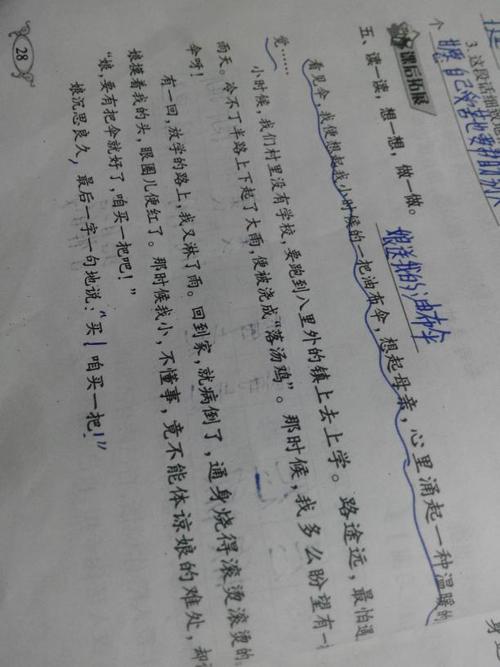 3. 这段话细致
个
想自己 也要帮助
课后拓展
五、读一读，想一想，做一做。
娘送我的油布伞
看见伞，我便想起我小时候的一把油布伞，想起母亲，心里涌起一种温暖的
觉……
小时候，我们村里没有学校，要跑到八里外的镇上去上学。路途远，最怕遇
雨天。冷不丁半路上下起了大雨，便被浇成“落汤鸡”。那时候，我多么盼望有一
伞呀！
有一回，放学的路上，我又淋了雨。回到家，就病倒了，通身烧得滚烫滚烫的
娘摸着我的头，眼圈儿便红了。那时候我小，不懂事，竟不能体谅娘的难处，却
“娘，要有把伞就好了，咱买一把吧！”
娘沉思良久，最后一字一句地说：“买！咱买一把！”
28